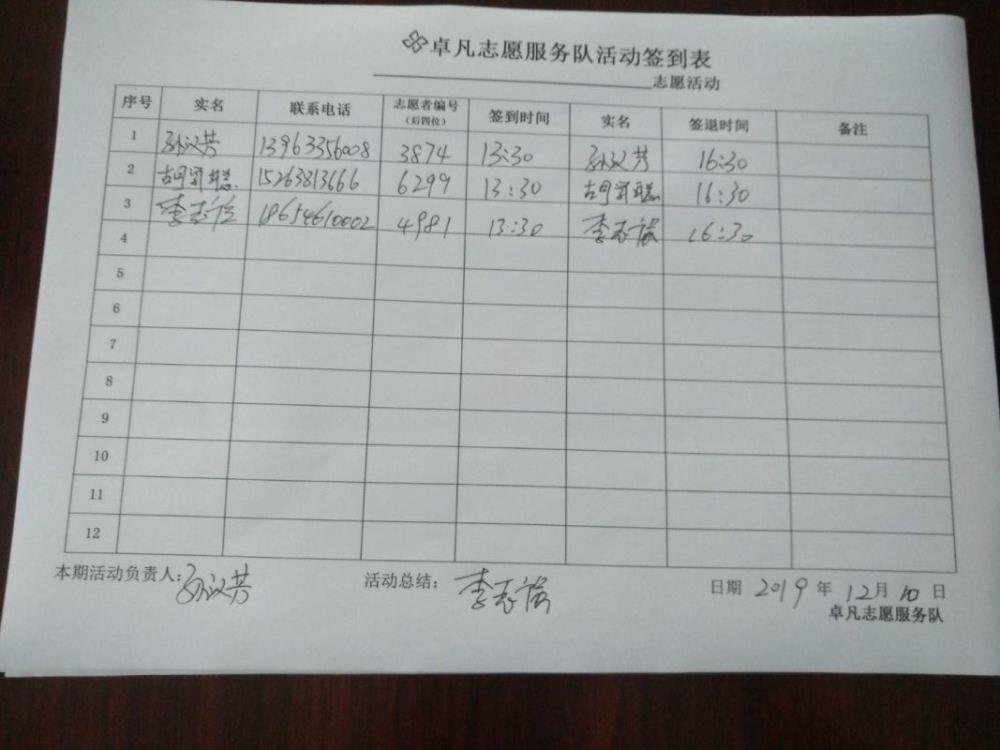 卓凡志愿服务队活动签到表
志愿活动
序号 实名 联系电话 志愿者编号（后四位） 签到时间 实名 签退时间 备注
1 孙汉芳 13963356008 3874 13:30 孙汉芳 16:30
2 15263813666 6299 13:30 16:30
3 李志 18654610002 4981 13:30 李志 16:30
4
5
6
7
8
9
10
11
12
本期活动负责人:孙汉芳 活动总结: 李志 日期 2019 年 12 月 10 日
卓凡志愿服务队